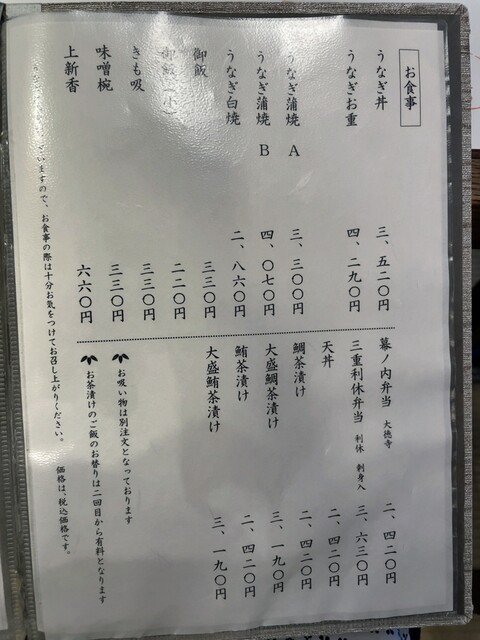 お食事
うなぎ丼 三、五二〇円
うなぎお重 四、二九〇円
うなぎ蒲焼 A 三、三〇〇円
うなぎ蒲焼 B 四、〇七〇円
うなぎ白焼 二、八六〇円
御飯 三三〇円
御飯(小) 二二〇円
きも吸 三三〇円
味噌椀 三三〇円
上新香 六六〇円
幕ノ内弁当 大徳寺 二、四二〇円
三重利休弁当 利休 刺身入 三、六三〇円
天丼 二、四二〇円
鯛茶漬け 二、四二〇円
大盛鯛茶漬け 三、一九〇円
鮪茶漬け 二、四二〇円
大盛鮪茶漬け 三、一九〇円
お吸い物は別注文となっております
お茶漬けのご飯のお替りは二回目から有料となります
いますので、お食事の際は十分お気をつけてお召し上がりください。 価格は、税込価格です。